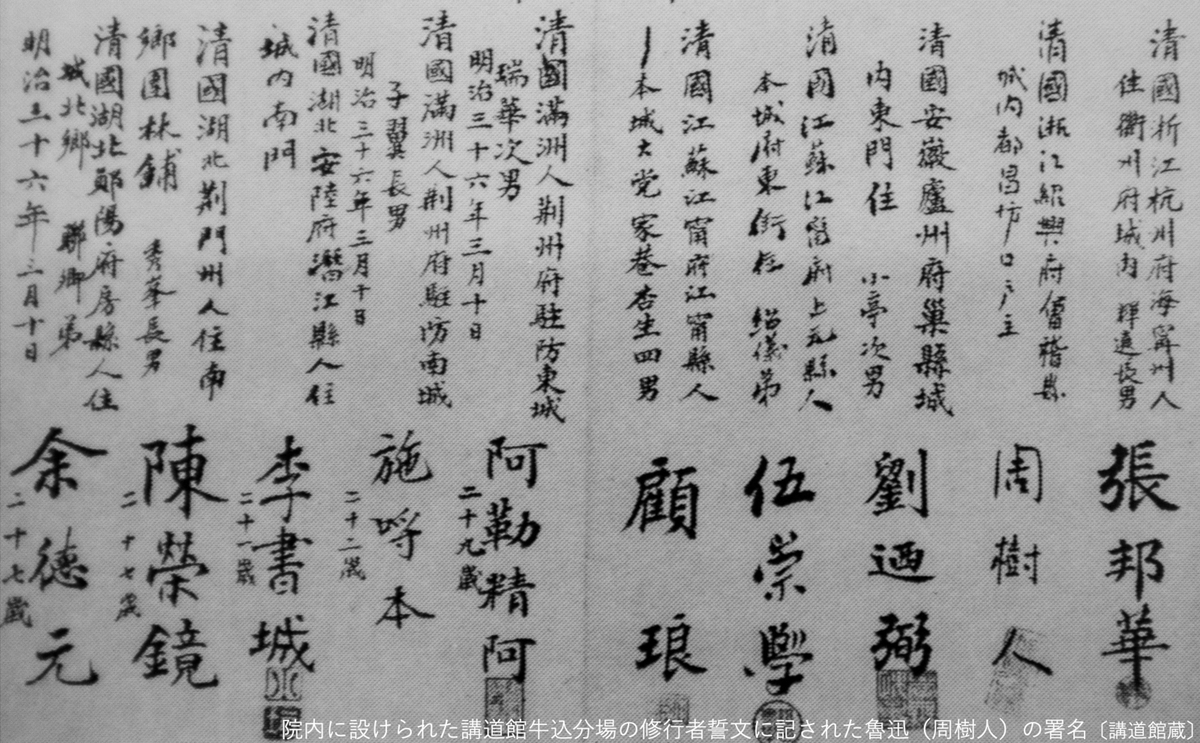 清國折江杭州府海寧州人
住衢州府城内 輝遠長男
張邦華
清國浙江紹興府會稽縣
城内都昌坊口戸主
周樹人
清國安徽廬州府巢縣城
内東門住 小亭次男
劉迺弼
清國江蘇江甯府上元縣人
本城府東街住 紹儀弟
伍崇學
清國江蘇江甯府江甯縣人
本城大党家巷杏生四男
顧琅
清國滿洲人荆州府駐防東城
瑞華次男
明治三十六年三月十日
阿勒精阿
二十九歳
清國滿洲人荆州府駐防南城
子翼長男
明治三十六年三月十日
施呼本
二十二歳
清國湖北安陸府潛江縣人住
城内南門
李書城
二十一歳
清國湖北荆門州人住南
鄉團林鋪 秀峯長男
陳榮鏡
二十七歳
清國湖北鄖陽府房縣人住
城北鄉 聯卿弟
明治三十六年三月十日
余德元
二十七歳
院内に設けられた講道館牛込分場の修行者誓文に記された魯迅（周樹人）の署名〔講道館蔵〕